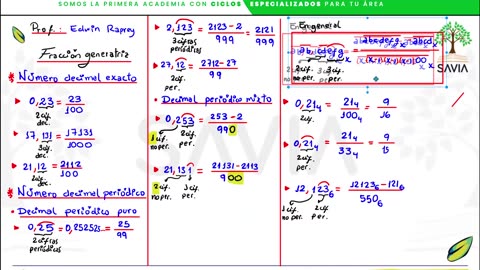 SOMOS LA PRIMERA ACADEMIA CON CICLOS ESPECIALIZADOS PARA TU ÁREA
Prof: Edvin Raprey
Fracción generatriz
* Número decimal exacto
0,23 = 23/100
2cif. dec.
17,131 = 17131/1000
3cif. dec.
21,12 = 2112/100
2cif. dec.
* Número decimal periódico
• Decimal periódico puro
0,25 = 0,252525 = 25/99
2cifras periódicas
2,123 = 2123-2/999 = 2121/999
3cifras periódicas
27,12 = 2712-27/99
2cif. per.
• Decimal periódico mixto
0,253 = 253-2/990
1cif. no per. 2cif. per.
21,131 = 21131-2113/900
2cif. no per. 1cif. per.
En general
SAVIA
0,21₄ = 21₄/100₄ = 9/16
2cif. dec.
0,21₄ = 21₄/33₄ = 9/15
2cif. per.
12,123₆ = 12123₆-121₆/550₆
1cif. no per. 2cif. per.